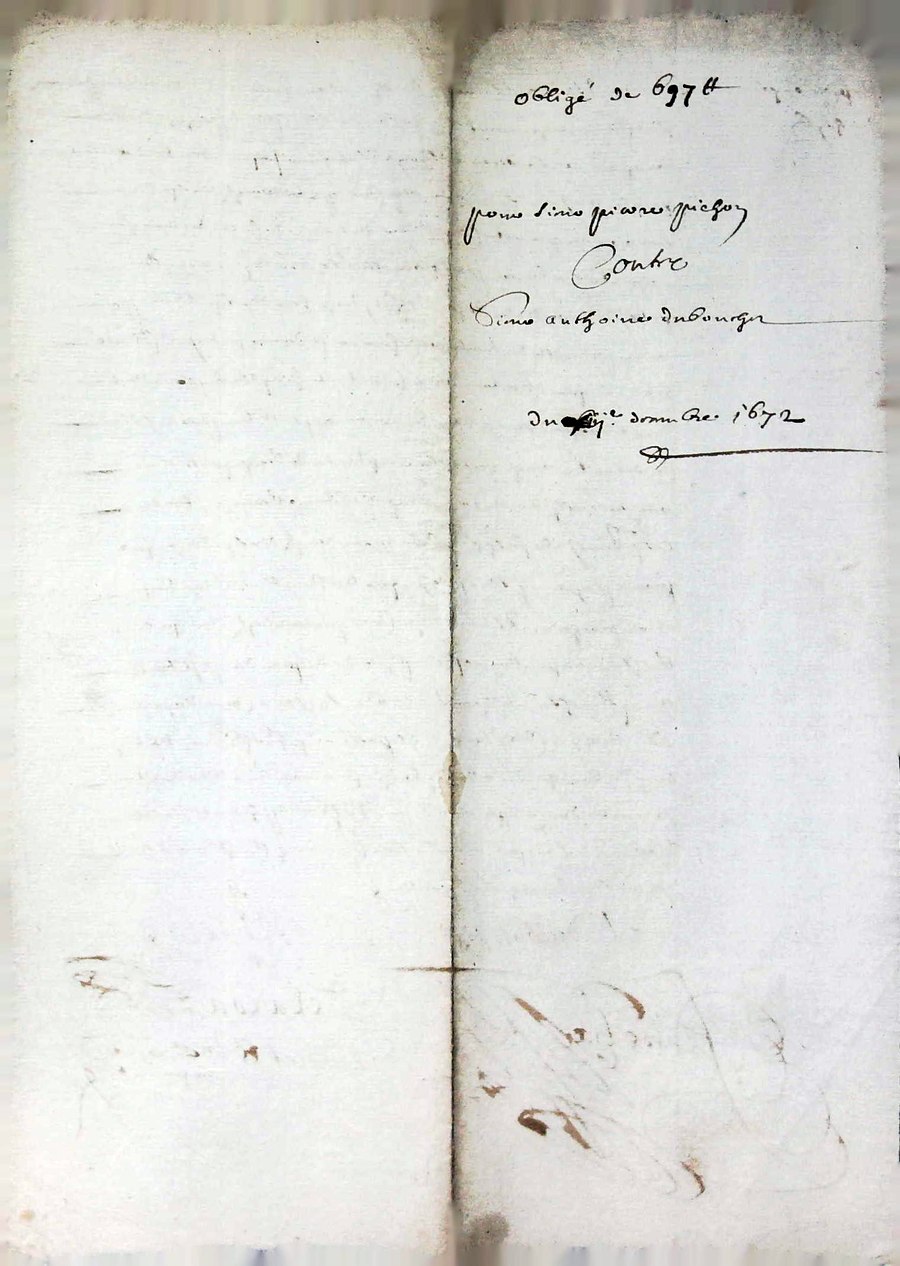 obligé de 697 ₶
pour sieur pierre pichon
Contre
Sieur anthoine duboucher
du decembre 1672